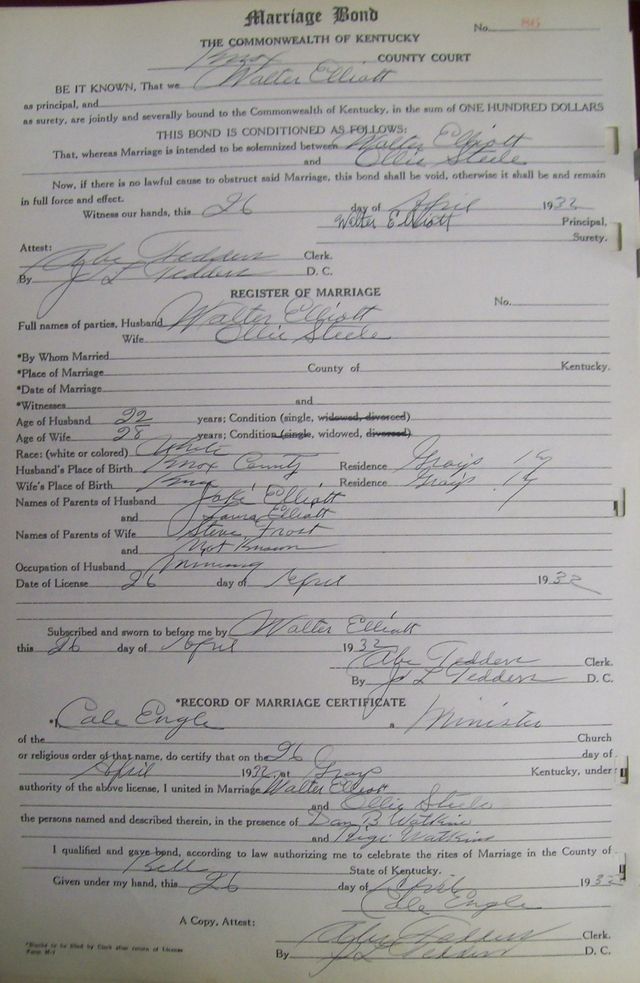 Marriage Bond
No.
THE COMMONWEALTH OF KENTUCKY
Knox COUNTY COURT
BE IT KNOWN, That we Walter Elliott
as principal, and
as surety, are jointly and severally bound to the Commonwealth of Kentucky, in the sum of ONE HUNDRED DOLLARS
THIS BOND IS CONDITIONED AS FOLLOWS:
That, whereas Marriage is intended to be solemnized between Walter Elliott
and Ollie Steele
Now, if there is no lawful cause to obstruct said Marriage, this bond shall be void, otherwise it shall be and remain
in full force and effect.
Witness our hands, this 26 day of April 1932
Walter Elliott Principal,
Surety.
Attest:
Abe Tedders Clerk.
By J L Tedders D. C.
REGISTER OF MARRIAGE
No.
Full names of parties, Husband Walter Elliott
Wife Ollie Steele
*By Whom Married
*Place of Marriage County of Kentucky.
*Date of Marriage
*Witnesses and
Age of Husband 22 years; Condition (single, widowed, divorced)
Age of Wife 28 years; Condition (single, widowed, divorced)
Race: (white or colored) White
Husband's Place of Birth Knox County Residence Grays Ky
Wife's Place of Birth Knox Residence Grays Ky
Names of Parents of Husband Jake Elliott
and Laura Elliott
Names of Parents of Wife Steve Frost
and Not Known
Occupation of Husband Mining
Date of License 26 day of April 1932
Subscribed and sworn to before me by Walter Elliott
this 26 day of April 1932
Abe Tedders Clerk.
By J L Tedders D. C.
*RECORD OF MARRIAGE CERTIFICATE
*I, Cale Engle a Minister
of the Church
or religious order of that name, do certify that on the 26 day of
April 1932, at Grays Kentucky, under
authority of the above license, I united in Marriage Walter Elliott
and Ollie Steele
the persons named and described therein, in the presence of Dan B Watkins
and Watkins
I qualified and gave bond, according to law authorizing me to celebrate the rites of Marriage in the County of
Bell State of Kentucky.
Given under my hand, this 26 day of April 1932
Cale Engle
A Copy, Attest:
Abe Tedders Clerk.
By J L Tedders D. C.
*Blanks to be filled by Clerk after return of License
Form M-1